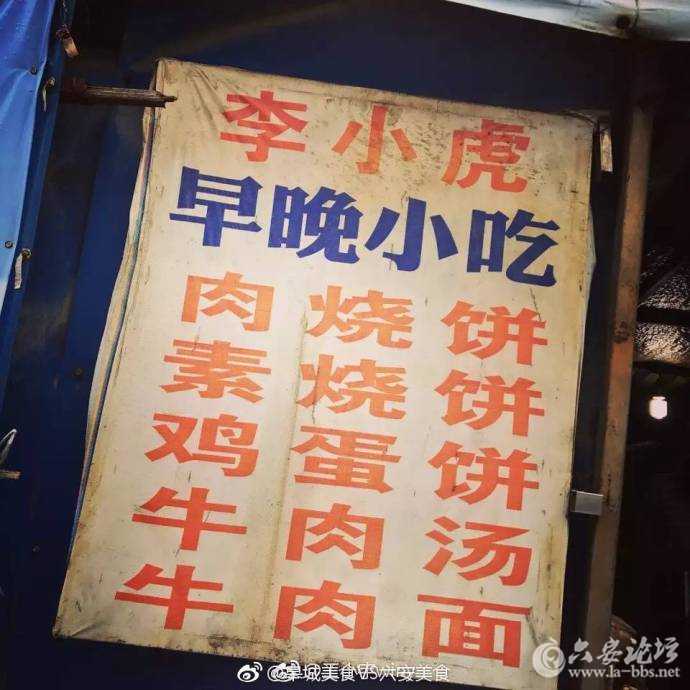 李小虎
早晚小吃
肉烧饼
素烧饼
鸡蛋饼
牛肉汤
牛肉面
六安论坛
www.la-bbs.net